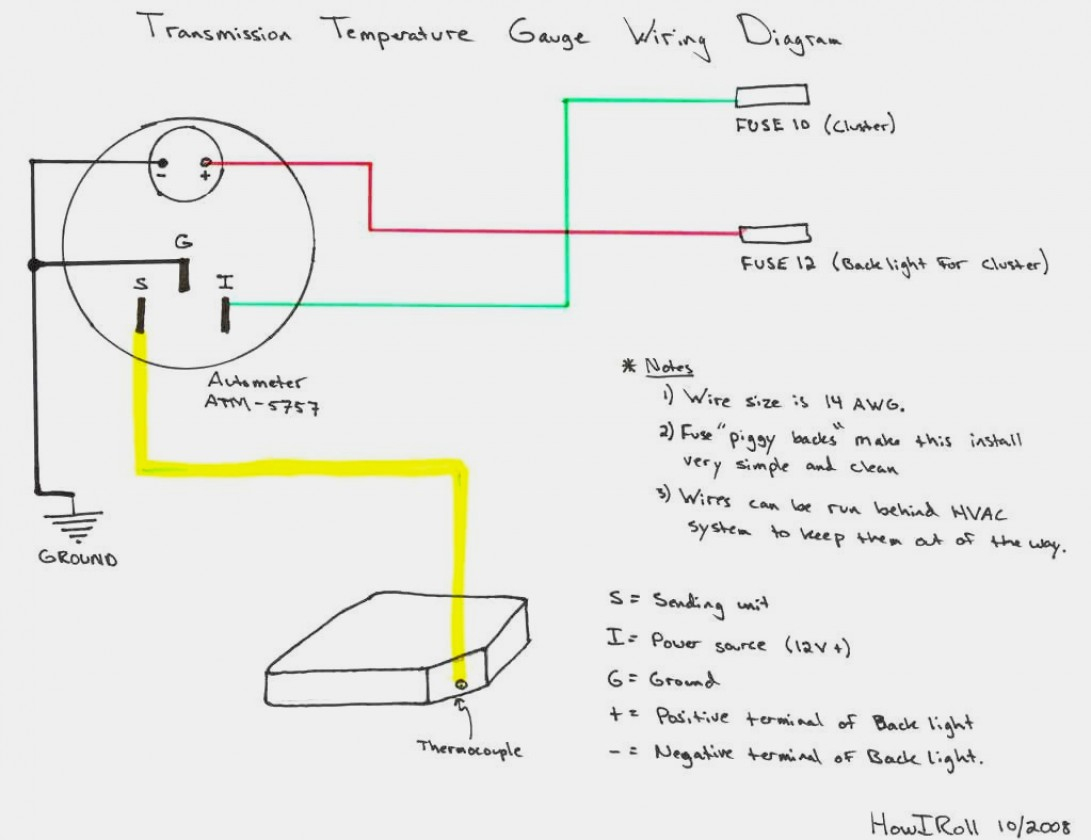 Transmission Temperature Gauge Wiring Diagram
FUSE 10 (Cluster)
- +
G
FUSE 12 (Backlight For Cluster)
S I
Autometer
ATM-5757
* Notes
1) Wire size is 14 AWG.
2) Fuse "piggy backs" make this install
very simple and clean
3) Wires can be run behind HVAC
system to keep them out of the way.
GROUND
S = Sending unit
I = Power source (12V+)
G = Ground
+ = Positive terminal of Back light
- = Negative terminal of Back light.
Thermocouple
HowIRoll 10/2008